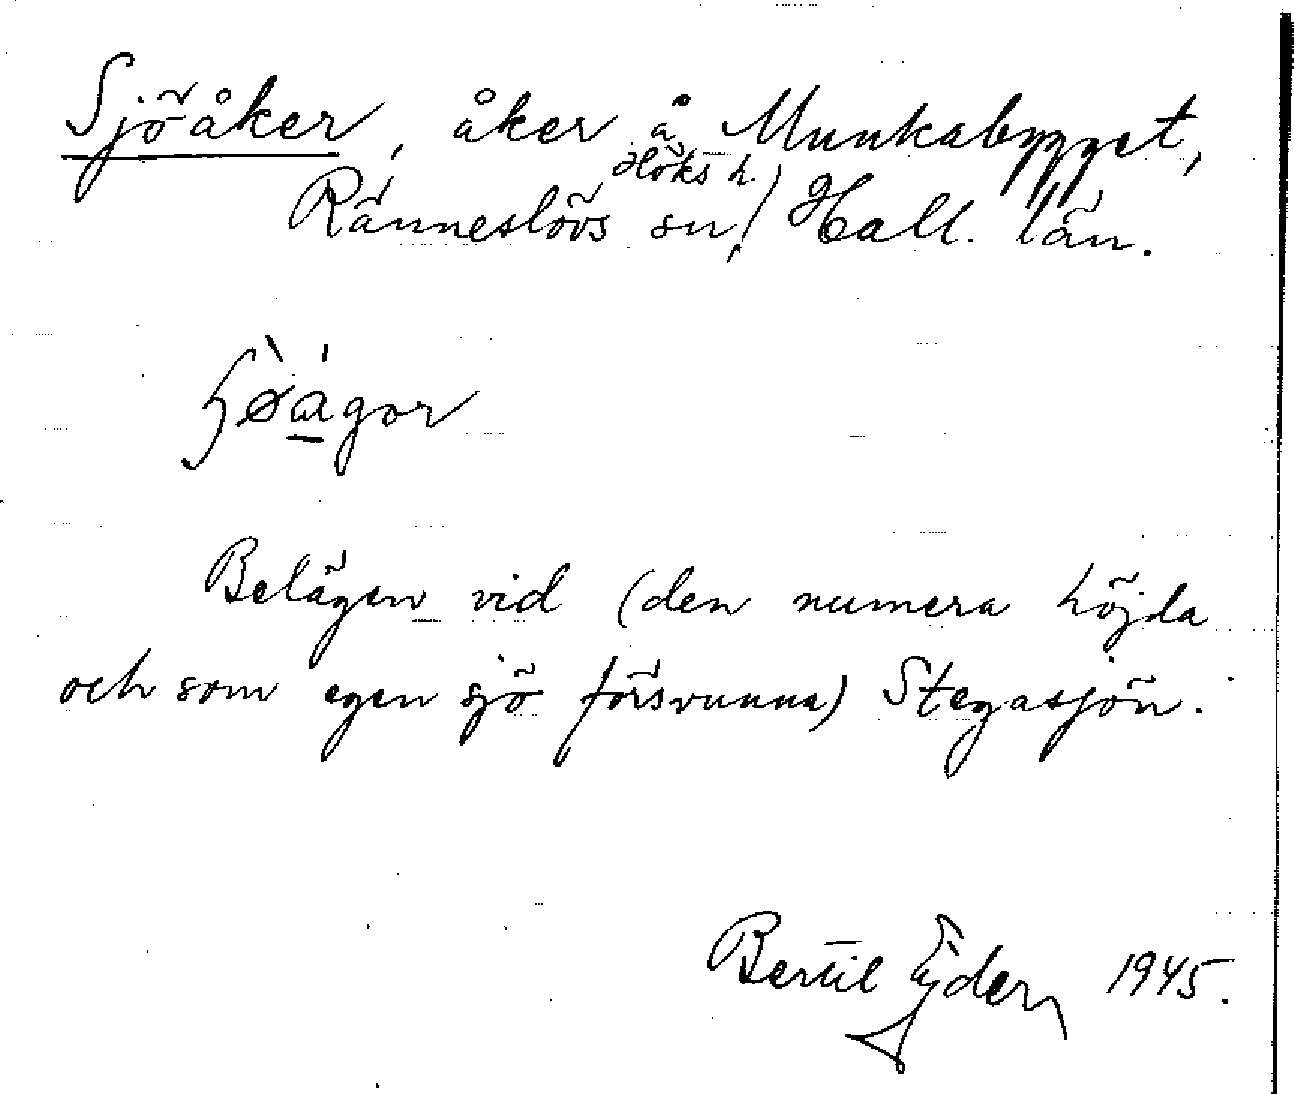 Sjöåker, åker å Munkabygget,
Höks h.
Ränneslövs sn, Hall. län.
Belägen vid (den numera höjda
och som egen sjö försvunna) Stegasjön.
Bertil Ejder 1945.